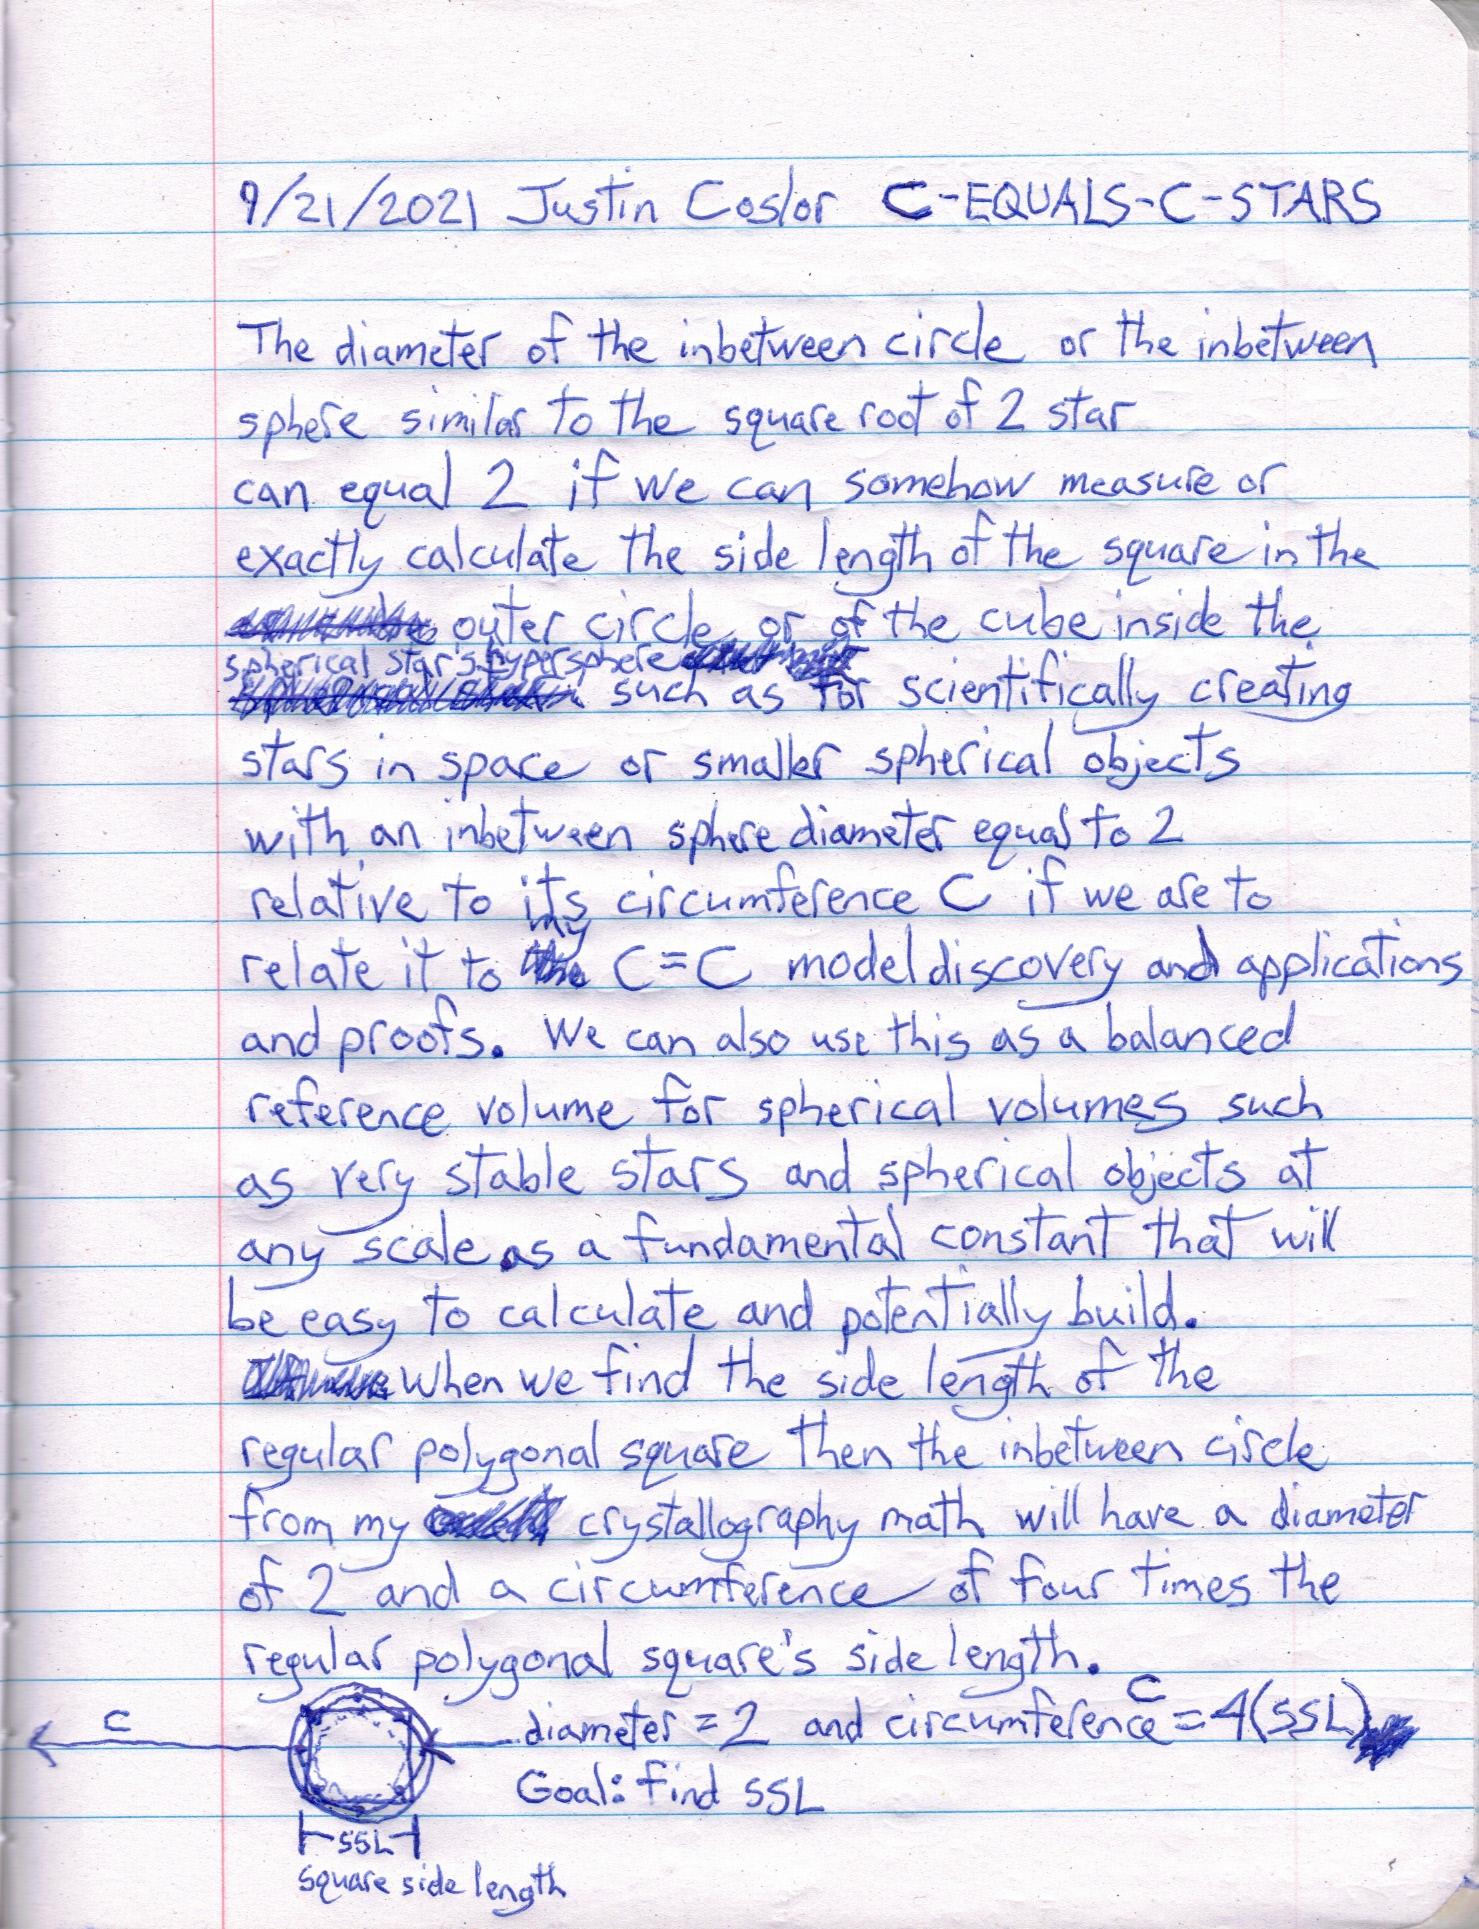 9/21/2021 Justin Coslor C-EQUALS-C-STARS
The diameter of the inbetween circle or the inbetween
sphere similar to the square root of 2 star
can equal 2 if we can somehow measure or
exactly calculate the side length of the square in the
outer circle or of the cube inside the
spherical star's hypersphere
such as for scientifically creating
stars in space or smaller spherical objects
with an inbetween sphere diameter equal to 2
relative to its circumference C if we are to
my
relate it to C=C model discovery and applications
and proofs. We can also use this as a balanced
reference volume for spherical volumes such
as very stable stars and spherical objects at
any scale as a fundamental constant that will
be easy to calculate and potentially build.
When we find the side length of the
regular polygonal square then the inbetween circle
from my crystallography math will have a diameter
of 2 and a circumference of four times the
regular polygonal square's side length.
C diameter = 2 and circumference C = 4(SSL)
Goal: find SSL
SSL
square side length